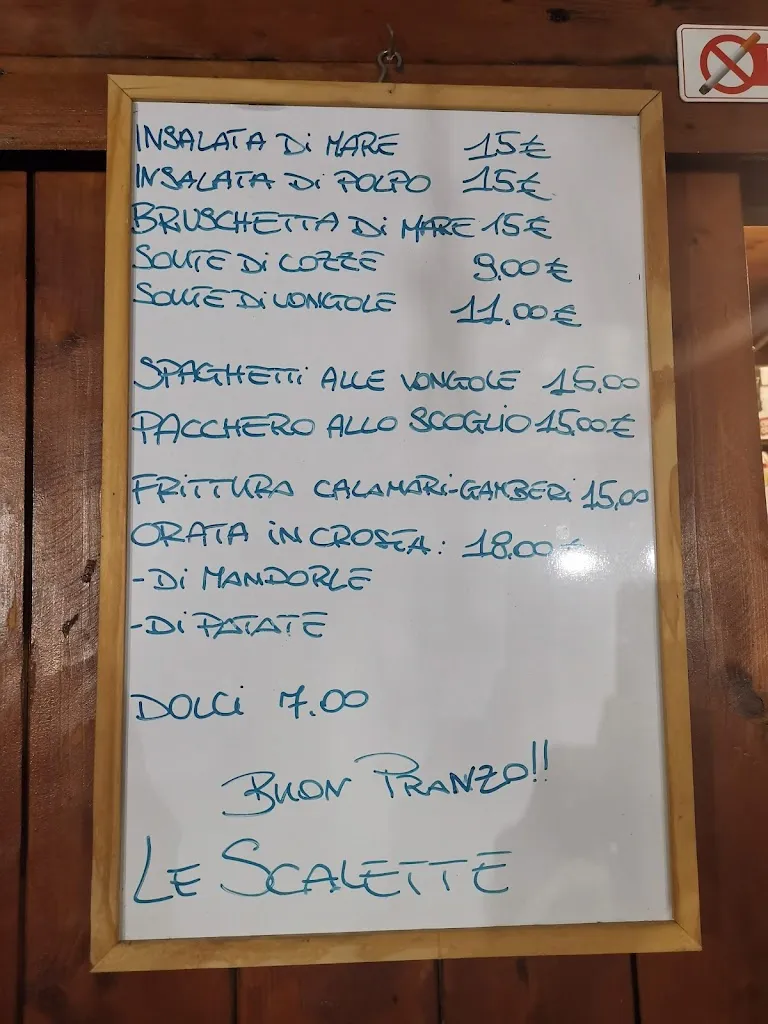 INSALATA Di MARE 15€
INSALATA Di POLPO 15€
BRUSCHETTA Di MARE 15€
SOUTE Di COZZE 9,00€
SOUTE Di VONGOLE 11,00€
SPAGHETTi ALLE VONGOLE 15,00
PACCHERO ALLO SCOGLiO 15,00€
FRITTURA CALAMARi-GAMBERi 15,00
ORATA iN CROSTA: 18,00€
-Di MANDORLE
-Di PATATE
DOLCi 7.00
BUON PRANZO!!
LE SCALETTE